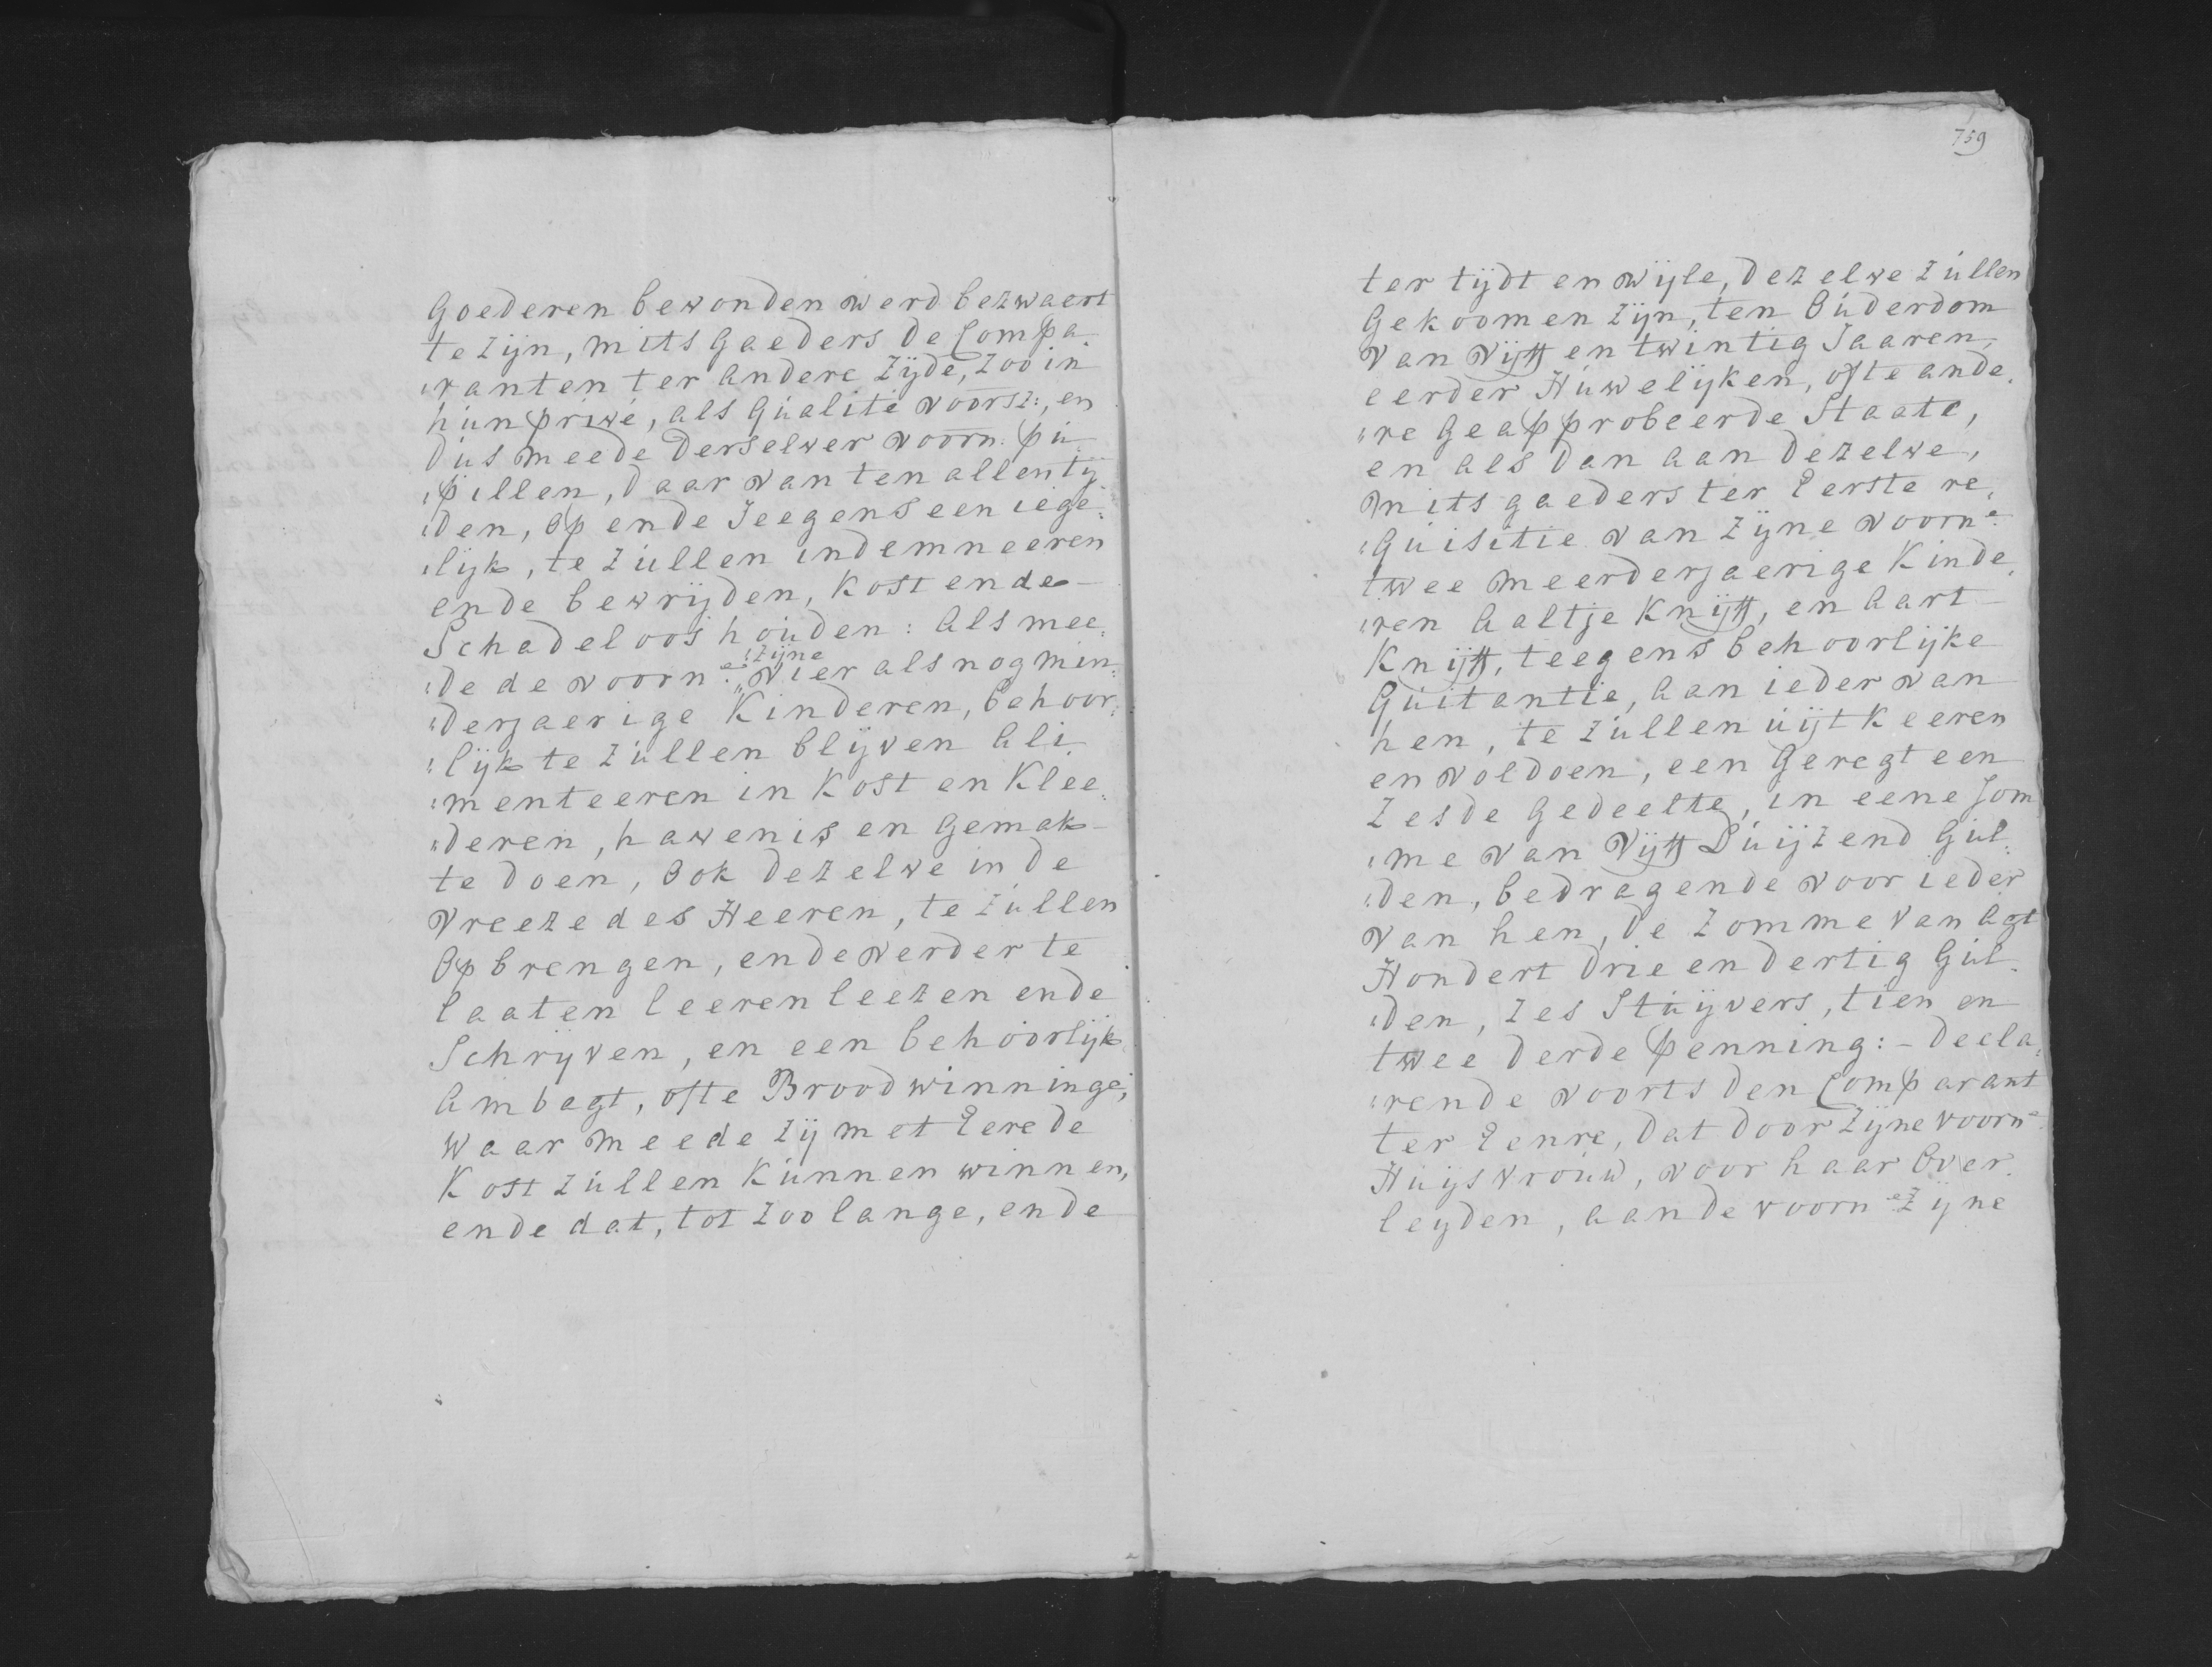 Goederen bewonden werd bezwaert
te zijn, mits gaeders de Compa„
„ranten ter andere zijde, zoo in
hún privé, als qúalité voorsz:, en
dús meede derselver voorn: pú„
„pillen, daar van ten allen tij„
„den, op ende Jeegens een iege„
„lijk, te zúllen indemneeren
ende bewrijden, kost ende
Schadeloos hoúden: als mee„
„de de voorn:e „zijne vier als nog min„
„derjaerige kinderen, behoor„
„lijk te zúllen blijven ali„
„menteeren in kost en klee„
„deren, havenis en gemak
te doen, ook dezelve in de
vreeze des Heeren, te zúllen
opbrengen, ende verder te
laaten leeren leezen ende
Schrijven, en een behoorlijk
ambagt, ofte Broodwinninge,
waar meede zij met Eere de
kost zúllen kúnnen winnen,
ende dat, tot zoo lange, ende
759
ter tijdt en wijle, dezelve zúllen
gekoomen zijn, ten oúderdom
van vijff en twintig Jaaren,
eerder Húwelijken, ofte ande„
„re geapprobeerde Staate,
en als dan aan dezelve,
mits gaeders ter Eerste re„
„qúisitie van zijne voorn:e
twee meerderjaerige kinde„
„ren Aaltje Knijff, en Aart
Knijff, teegens behoorlijke
qúitantie, aan ieder van
hen, te zúllen úijtkeeren
en voldoen, een geregt een
zesde gedeelte, in eene Som„
„me van vijff Dúijzend gúl„
„den, bedragende voor ieder
van hen, de zomme van agt
Hondert drie en dertig gúl„
„den, zes Stúijvers, tien en
twee derde penning: - decla„
„rende voorts den Comparant
ter Eenre, dat door zijne voorn:e
Húijsvroúw, voor haar over„
leyden, aan de voorn:e zijne